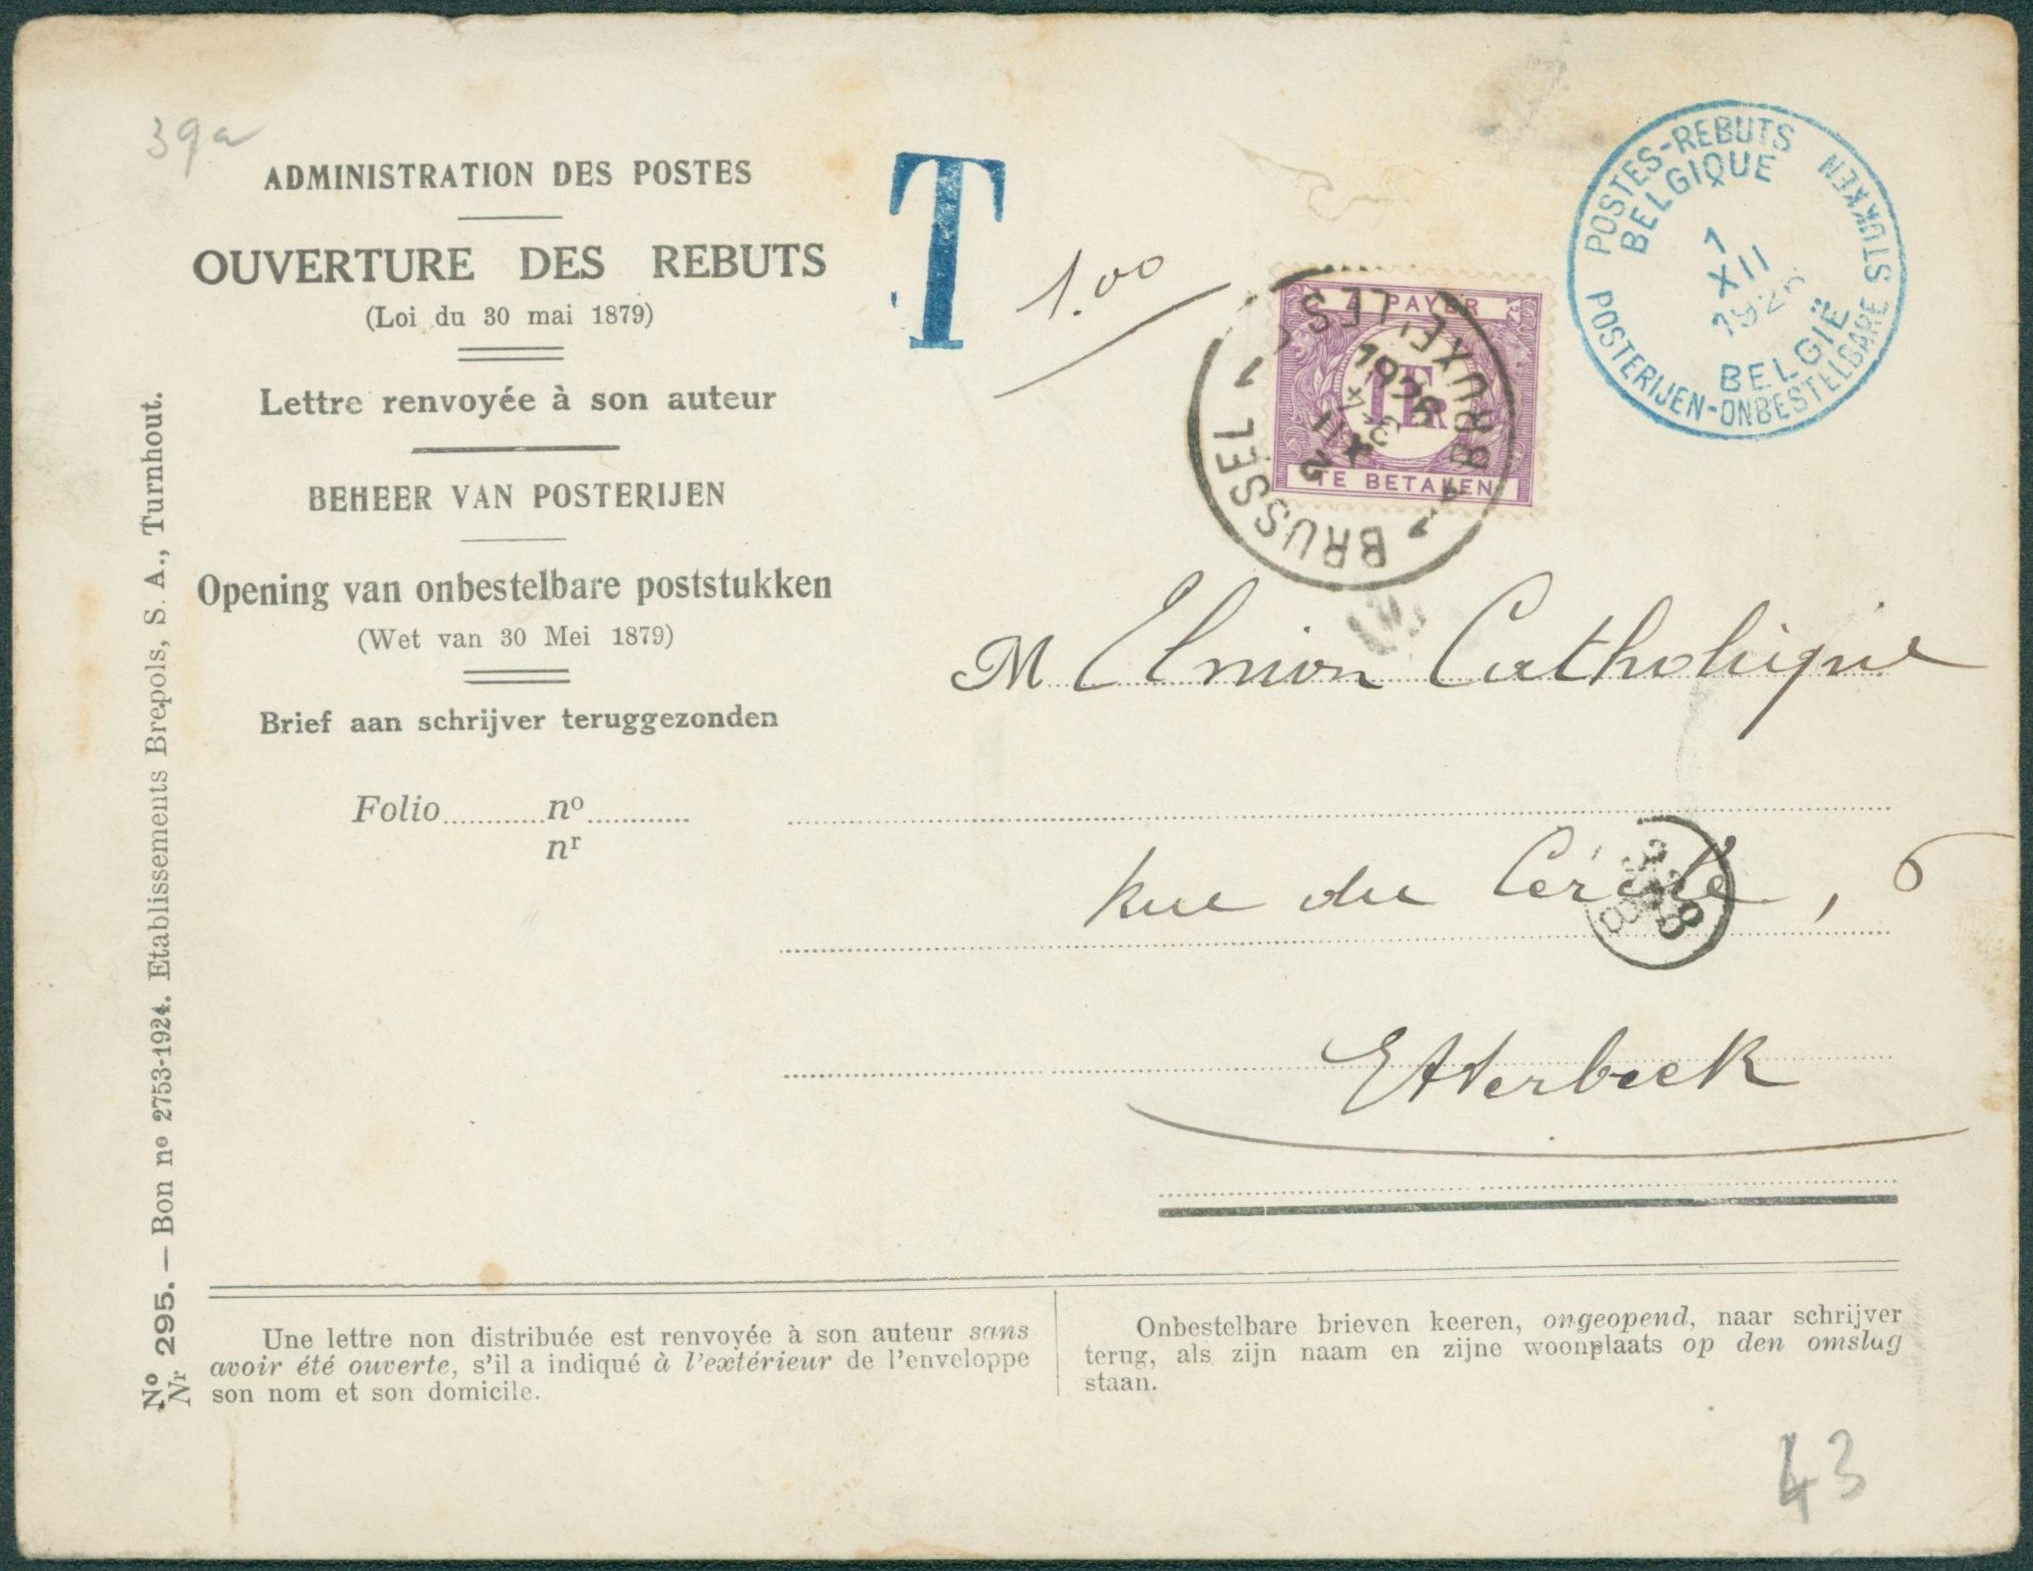 39a
ADMINISTRATION DES POSTES
OUVERTURE DES REBUTS
(Loi du 30 mai 1879)
Lettre renvoyée à son auteur
BEHEER VAN POSTERIJEN
Opening van onbestelbare poststukken
(Wet van 30 Mei 1879)
Brief aan schrijver teruggezonden
Folio............no............
nr
T
1.00
A PAYER
1 FR
TE BETALEN
BRUXELLES 1
1 BRUSSEL 1
2
XII
3-4
1926
POSTES-REBUTS
BELGIQUE
1
XII
1926
BELGIË
POSTERIJEN-ONBESTELBARE STUKKEN
M Union Catholique
Rue du Cercle, 6
Etterbeek
Une lettre non distribuée est renvoyée à son auteur sans
avoir été ouverte, s'il a indiqué à l'extérieur de l'enveloppe
son nom et son domicile.
Onbestelbare brieven keeren, ongeopend, naar schrijver
terug, als zijn naam en zijne woonplaats op den omslag
staan.
No 295. — Bon no 2753-1924. Etablissements Brepols, S. A., Turnhout.
Nr
43